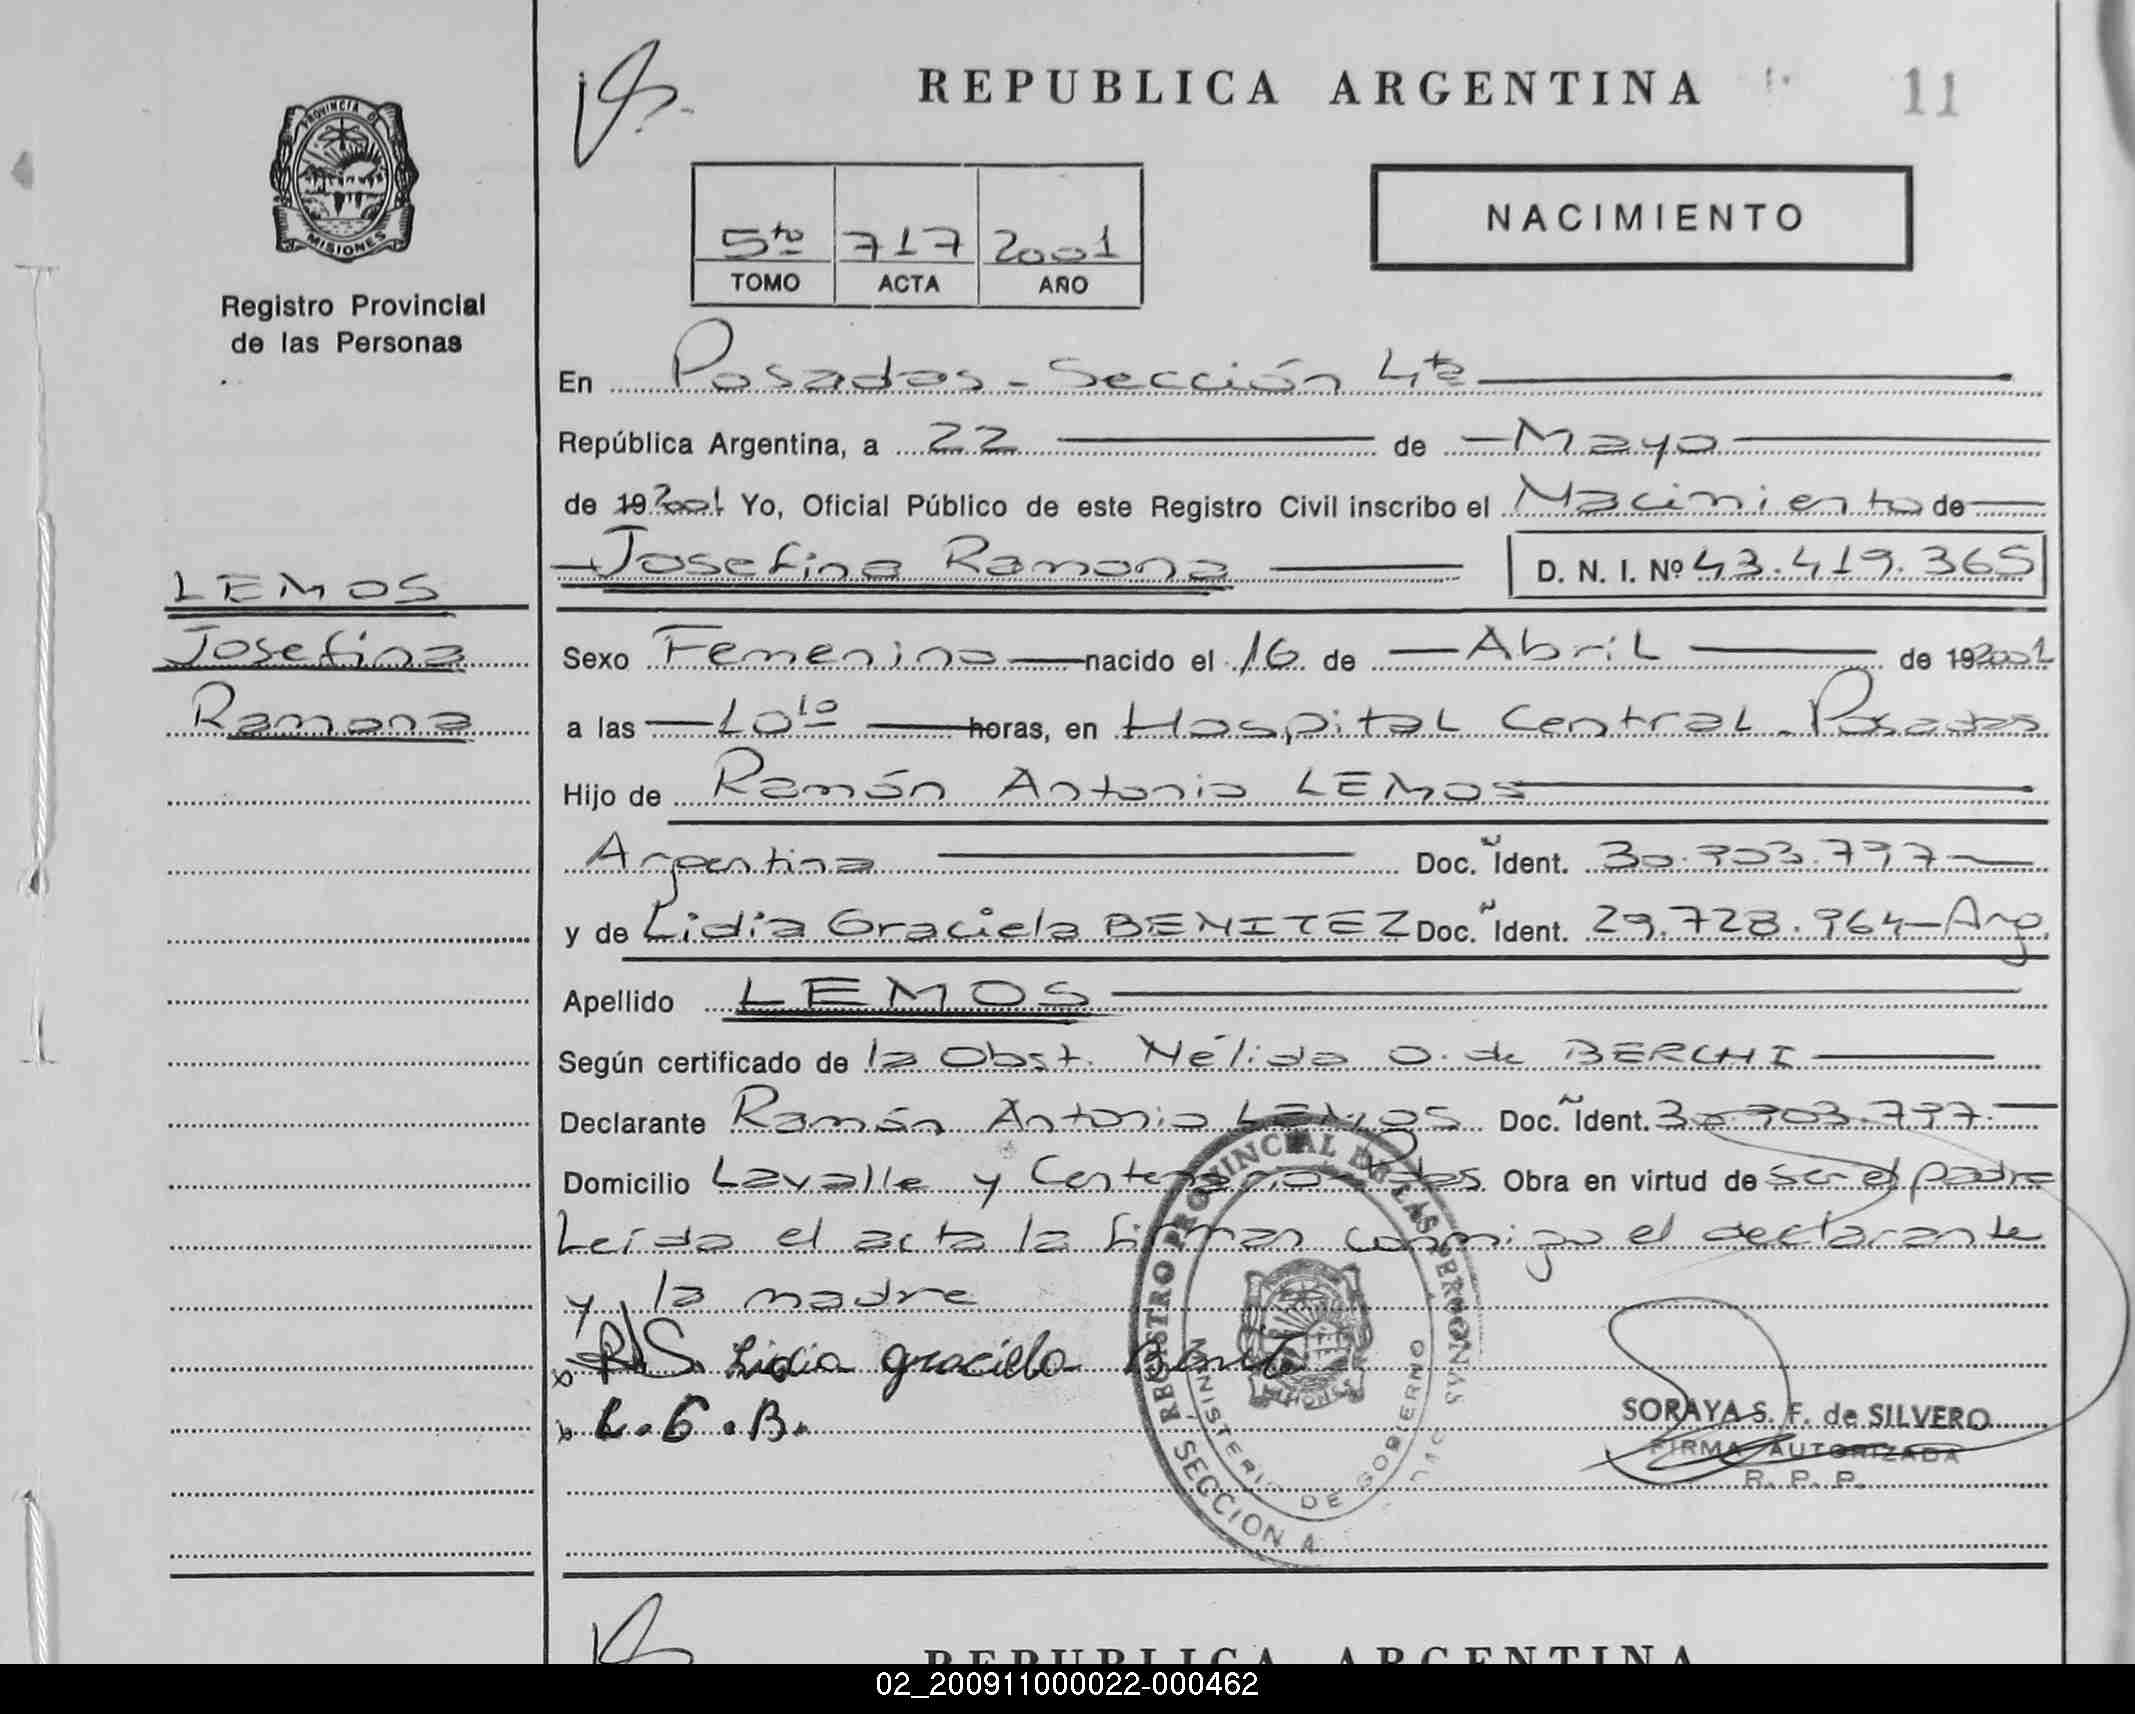 REPUBLICA ARGENTINA
11
PROVINCIA DE
MISIONES
Registro Provincial
de las Personas
5to 717 2001
TOMO ACTA AÑO
NACIMIENTO
En Posadas - Sección 4ta
República Argentina, a 22 de Mayo
de 19 2001 Yo, Oficial Público de este Registro Civil inscribo el Nacimiento de
Josefina Ramona D. N. I. Nº 43.419.365
LEMOS
Josefina
Ramona
Sexo Femenino nacido el 16 de Abril de 19 2001
a las 10 10 horas, en Hospital Central - Posadas
Hijo de Ramón Antonio LEMOS
Argentina Doc. Ident. 30.903.797
y de Lidia Graciela BENITEZ Doc. Ident. 29.728.964 - Arg.
Apellido LEMOS
Según certificado de la Obst. Nélida O. de BERCHI
Declarante Ramón Antonio LEMOS Doc. Ident. 30.903.797
Domicilio Lavalle y Centenario - Pdas Obra en virtud de ser el padre
Leída el acta la firman conmigo el declarante
y la madre
Lidia graciela Benite
L. G. B.
REGISTRO PROVINCIAL DE LAS PERSONAS
MINISTERIO DE GOBIERNO
SECCION 4
SORAYA S. F. de SILVERO
FIRMA AUTORIZADA
R. P. P.
REPUBLICA ARGENTINA
02_200911000022-000462